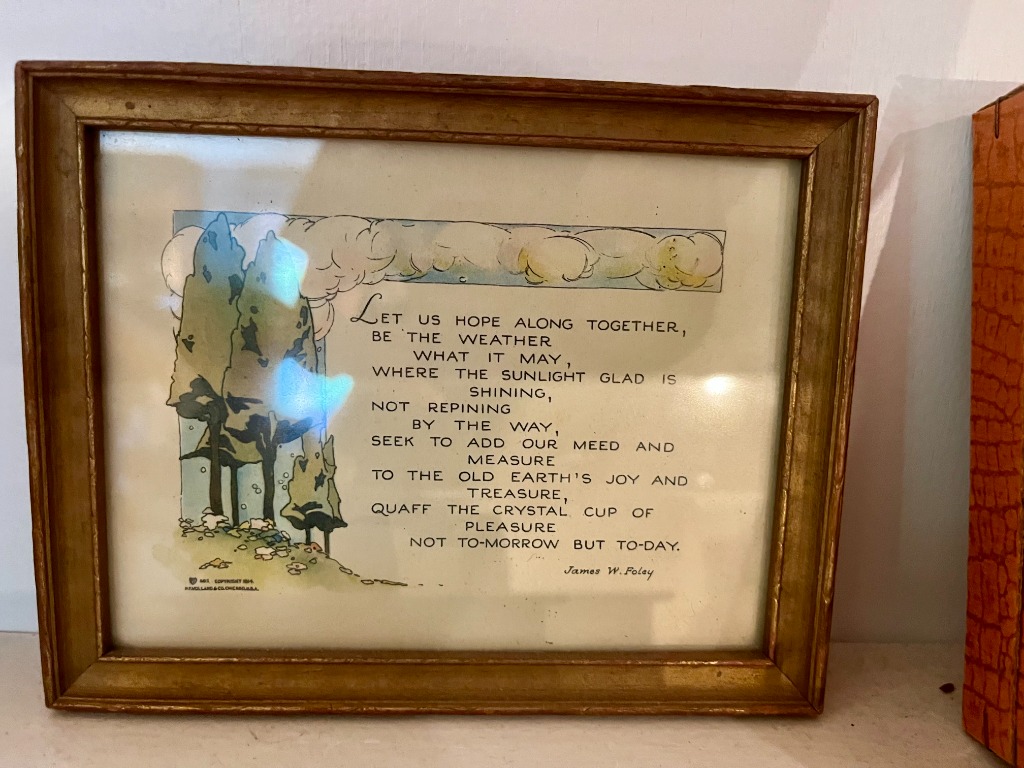 LET US HOPE ALONG TOGETHER,
BE THE WEATHER
WHAT IT MAY,
WHERE THE SUNLIGHT GLAD IS
SHINING,
NOT REPINING
BY THE WAY,
SEEK TO ADD OUR MEED AND
MEASURE
TO THE OLD EARTH'S JOY AND
TREASURE,
QUAFF THE CRYSTAL CUP OF
PLEASURE
NOT TO-MORROW BUT TO-DAY.
James W. Foley
COPYRIGHT 1914
P.F. VOLLAND & CO. CHICAGO, U.S.A.